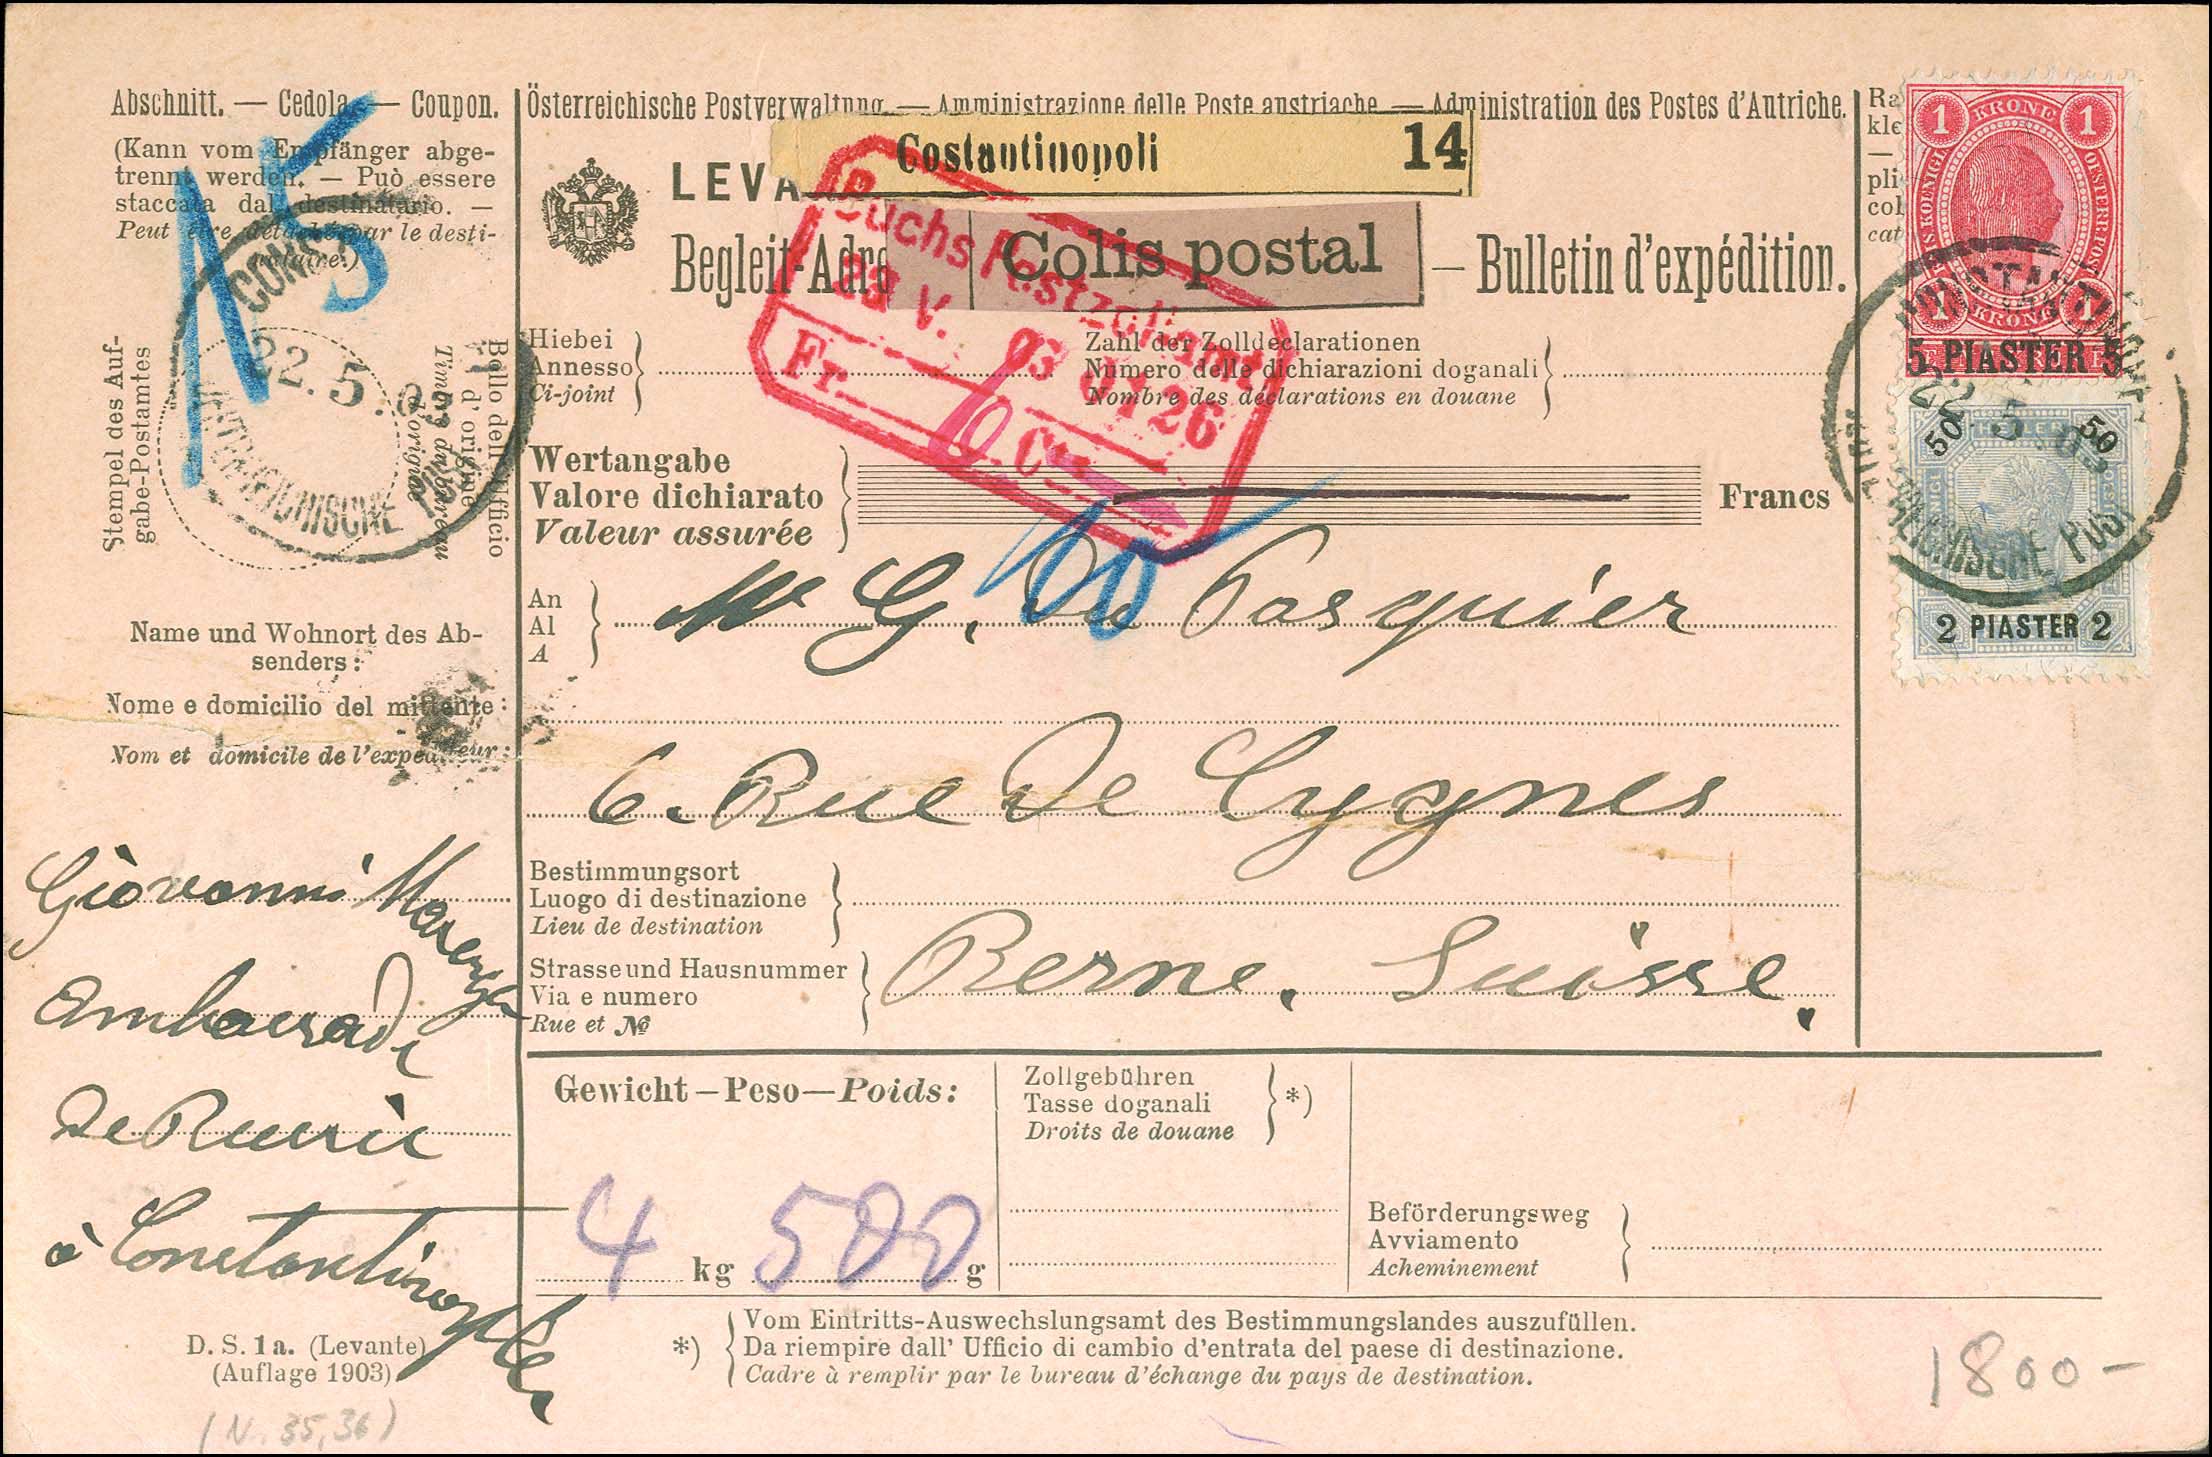 Abschnitt. — Cedola. — Coupon.
(Kann vom Empfänger abge-
trennt werden. — Può essere
staccata dal destinatario. —
Peut être détaché par le desti-
nataire.)
Stempel des Auf-
gabe-Postamtes
Bollo dell'Ufficio
d'origine
Timbre du bureau
d'origine
22.5.03
Name und Wohnort des Ab-
senders:
Nome e domicilio del mittente:
Nom et domicile de l'expéditeur:
Giovanni
de Russie
à Constantinople
D. S. 1a. (Levante)
(Auflage 1903)
(N. 35, 36)
Österreichische Postverwaltung — Amministrazione delle Poste austriache — Administration des Postes d'Autriche.
Costantinopoli 14
LEVA
Colis postal
Begleit-Adre — Bulletin d'expédition.
Buchs Postzollamt
23 V. 03 0126
Fr. C
Hiebei
Annesso
Ci-joint
Zahl der Zolldeclarationen
Numero delle dichiarazioni doganali
Nombre des déclarations en douane
Wertangabe
Valore dichiarato
Valeur assurée
Francs
An
Al
A
Mr G. Du Pasquier
6. Rue De Cygnes
Bestimmungsort
Luogo di destinazione
Lieu de destination
Strasse und Hausnummer
Via e numero
Rue et No
Berne. Suisse.
Gewicht — Peso — Poids:
4 kg 500 g
Zollgebühren
Tasse doganali
Droits de douane
*)
Beförderungsweg
Avviamento
Acheminement
*)
Vom Eintritts-Auswechslungsamt des Bestimmungslandes auszufüllen.
Da riempire dall' Ufficio di cambio d'entrata del paese di destinazione.
Cadre à remplir par le bureau d'échange du pays de destination.
Ra
kle
—
pli
col
cat
1 KRONE 1
5 PIASTER 5
50 HELLER 50
2 PIASTER 2
1800-